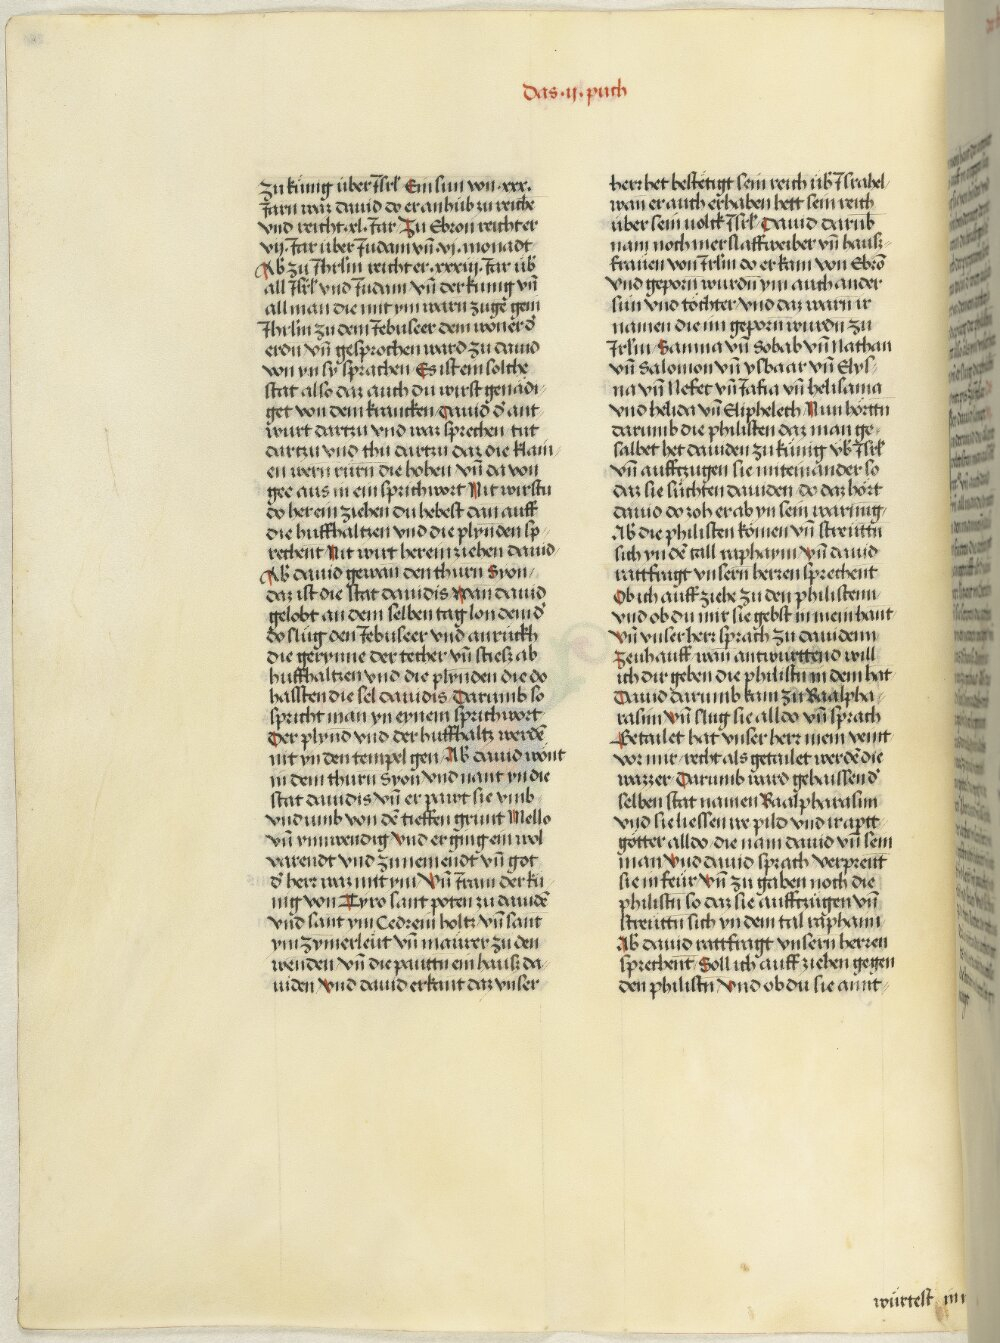 Das ·ij· puch
zu künig über Jsrl̄ Ein sun von ·xxx·
Jarn waz dauid do er anhub zu reiche
vnd reicht ·xl· Jar Zu Ebron reicht er
vij· Jar über Judam vn̄ ·vj· monadt
Ab̄ zu Jhrlm̄ reicht er ·xxxiij· Jar üb̄
all Jsrl̄ vnd Judam vn̄ der kunig vn̄
all man die mit ym warn zugē gem
Jhrlm̄ zu dem Jebuseer dem woner d̄
erdn vn̄ gesprochen ward zu dauid
von yn sy sprachen Es ist ein solche
stat also daz auch du wirst genadi-
get von dem krancken Dauid d̄ ant
wurt dartzu vnd waz sprechen tut
dartzu vnd thu dartzu daz die klain
en wern rürn die hohen vn̄ da von
gee aus in ein sprichwort Nit wirstu
do herein ziehen du hebest dan auff
die huffhaltzen vnd die plynden sp-
rechent Nit wirt herein ziehen dauid
Ab̄ dauid gewan den thurn Syon
daz ist die stat dauidis Wan dauid
gelobt an dem selben tag lon dem d̄
do slug den Jebuseer vnd anrückh
die gerynne der techer vn̄ stiesz ab
huffhaltzen vnd die plynden die do
hassten die sel dauidis Darumb so
spricht man yn eynem sprichwort
Der plynd vnd der huffhaltz werdē
nit yn den tempel gen Ab̄ dauid wont
in dem thurn Syon vnd nant yn die
stat dauidis vn̄ er pawt sie vmb
vnd vmb von dē tieffen grunt Mello
vn̄ ynnwendig vnd er ging ein wol
varendt vnd zunemendt vn̄ got
d̄ herr waz mit ym Vn̄ Jram der kü
nig von Tyro sant poten zu dauidē
vnd sant ym Cedrein holtz vn̄ sant
ym zymerleut vn̄ maurer zu den
wenden vn̄ die pauttn ein hausz da-
uiden Vnd dauid erkant daz vnser
herr het bestetigt sein reich üb̄ Jsrahel
wan er auch erhaben hett sein reich
über sein volck Jsrl̄ Dauid darūb
nam noch mer slaffweiber vn̄ hausz
frauen von Jrlm̄ do er kam von Ebrō
vnd geporn wurdn̄ ym auch ander
sün vnd töchter vnd daz warn ir
namen die im geporn wurdn zu
Jrlm̄ Samna vn̄ Sobab vn̄ Nathan
vn̄ Salomon vn̄ ysbaar vn̄ Elys-
na vn̄ Nefet vn̄ Jafia vn̄ helisama
vnd helida vn̄ Elipheleth Nun hörttn
darumb die philisten daz man ge-
salbet het dauiden zu künig vb̄ Jsrl̄
vn̄ aufftzugen sie miteinander so
daz sie süchten dauiden do daz hört
dauid do zoh er ab yn sein warnng
Ab̄ die philisten kömen vn̄ streuttn
sich yn dē tall raphaym Vn̄ dauid
rattfragt vnsern herren sprechent
Ob ich auff ziehe zu den philistenn
vnd ob du mir sie gebst in mein hant
Vn̄ vnser herr sprach zu dauidenn
Zeuh auff wan antwurttend will
ich dir geben die philistn in dem hat
Dauid darumb kam zu Baalpha-
rasim Vn̄ slug sie alldo vn̄ sprach
Getailet hat vnser herr mein veint
vor mir recht als getailet werdē die
wazzer Darumb ward gehaissen d̄
selben stat namen Baalpharasim
vnd sie liessen ire pild vnd ir aptt-
götter alldo die nam dauid vn̄ sein
man Vnd dauid sprach verprent
sie in feür Vn̄ zu gaben noch die
philistn so daz sie aufftzügen vn̄
streuttn sich yn dem tal raphaim
Ab̄ dauid rattfragt vnsern herren
sprechent Soll ich auff ziehen gegen
den philistn Vnd ob du sie annt-
würtest